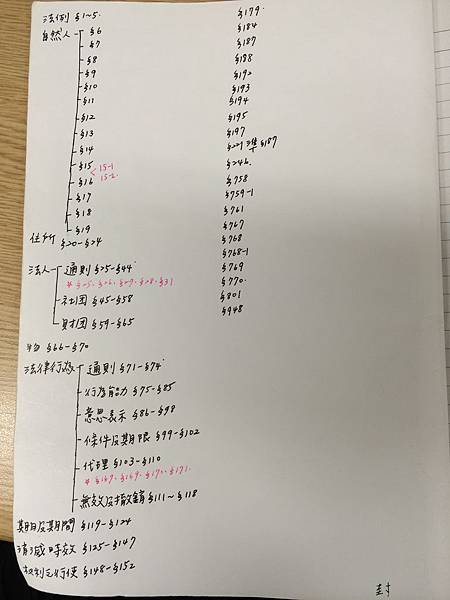 法例 §1~5.
自然人 §6
§7
§8
§9
§10
§11
§12
§13
§14
§15
15-1
15-2
§16
§17
§18
§19
住所 §20-§24
法人 通則 §25-§44
*§25. §26. §27. §28. §31
社团 §45-§58
財团 §59-§65
物 §66-§70
法律行為 通則 §71-§74
行為能力 §75-§85
意思表示 §86-§98
條件及其期限 §99-§102
代理 §103-§110
* §167. §169. §170. §171.
無效及撤銷 §111~§118
期日及期間 §119-§124
消滅時效 §125-§147
权利之行使 §148-§152
§179.
§184
§187
§188
§192
§193
§194
§195
§197
§221 準 §187
§246.
§758
§759-1
§761
§767
§768
§768-1
§769
§770.
§801
§948